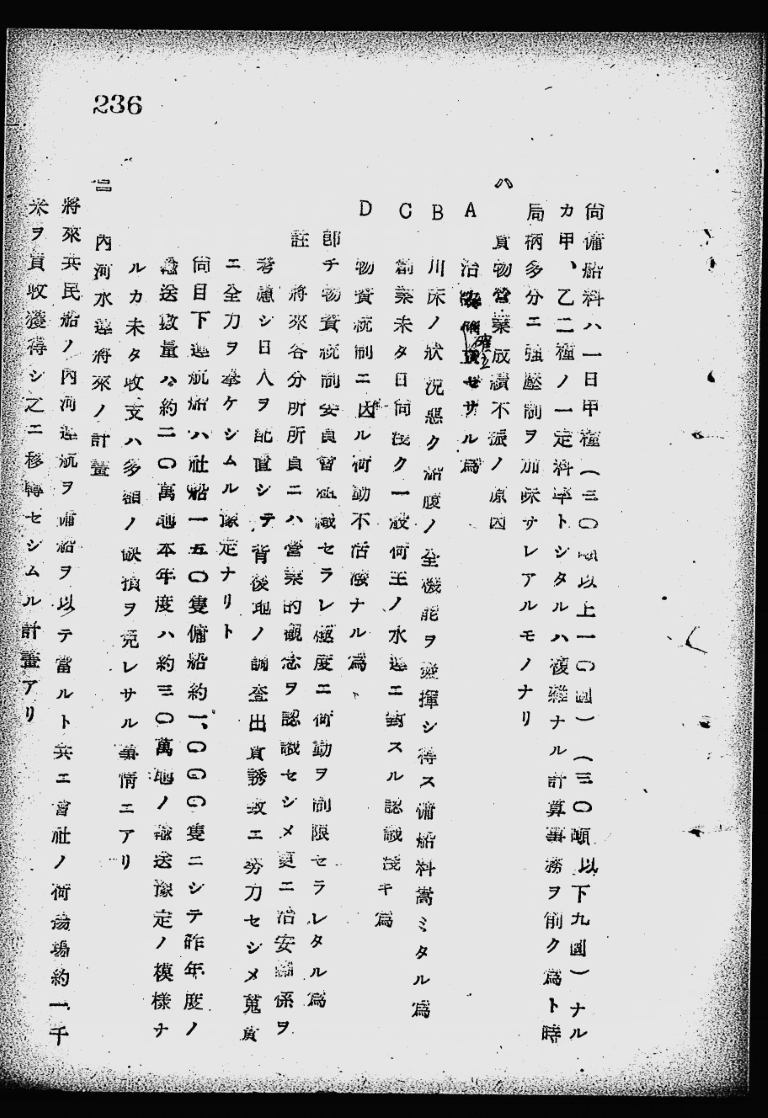 236
尙傭船料ハ一日甲種（三〇噸以上一〇圓）（三〇噸以下九圓）ナル
カ甲、乙二種ノ一定料率トシタルハ複雜ナル計算事務ヲ省ク爲ト時
局柄多分ニ強壓制ヲ加味サレアルモノナリ
ハ 貨物營業成績不振ノ原因
A 治安確立セサル爲
B 川床ノ狀況惡ク船腹ノ全機能ヲ發揮シ得ス傭船料嵩ミタル爲
C 創業未タ日尙淺ク一般荷主ノ水運ニ對スル認識淺キ爲
D 物資統制ニ因ル荷動不活潑ナル爲
卽チ物資統制委員會組織セラレ極度ニ荷動ヲ制限セラレタル爲
註 將來各分所所員ニハ營業的觀念ヲ認識セシメ更ニ治安關係ヲ
考慮シ日人ヲ配置シテ背後地ノ調査出貨誘致ニ努力セシメ蒐貨
ニ全力ヲ擧ケシムル豫定ナリト
尙目下運航船ハ社船一五〇隻傭船約一、〇〇〇隻ニシテ昨年度ノ
輸送數量ハ約二〇萬瓲本年度ハ約三〇萬瓲ノ輸送豫定ノ模樣ナ
ルカ未タ收支ハ多額ノ缺損ヲ免レサル事情ニアリ
内河水運將來ノ計畫
將來共民船ノ内河運航ヲ傭船ヲ以テ當ルト共ニ會社ノ荷揚場約一千
米ヲ買收獲得シ之ニ移轉セシムル計畫アリ